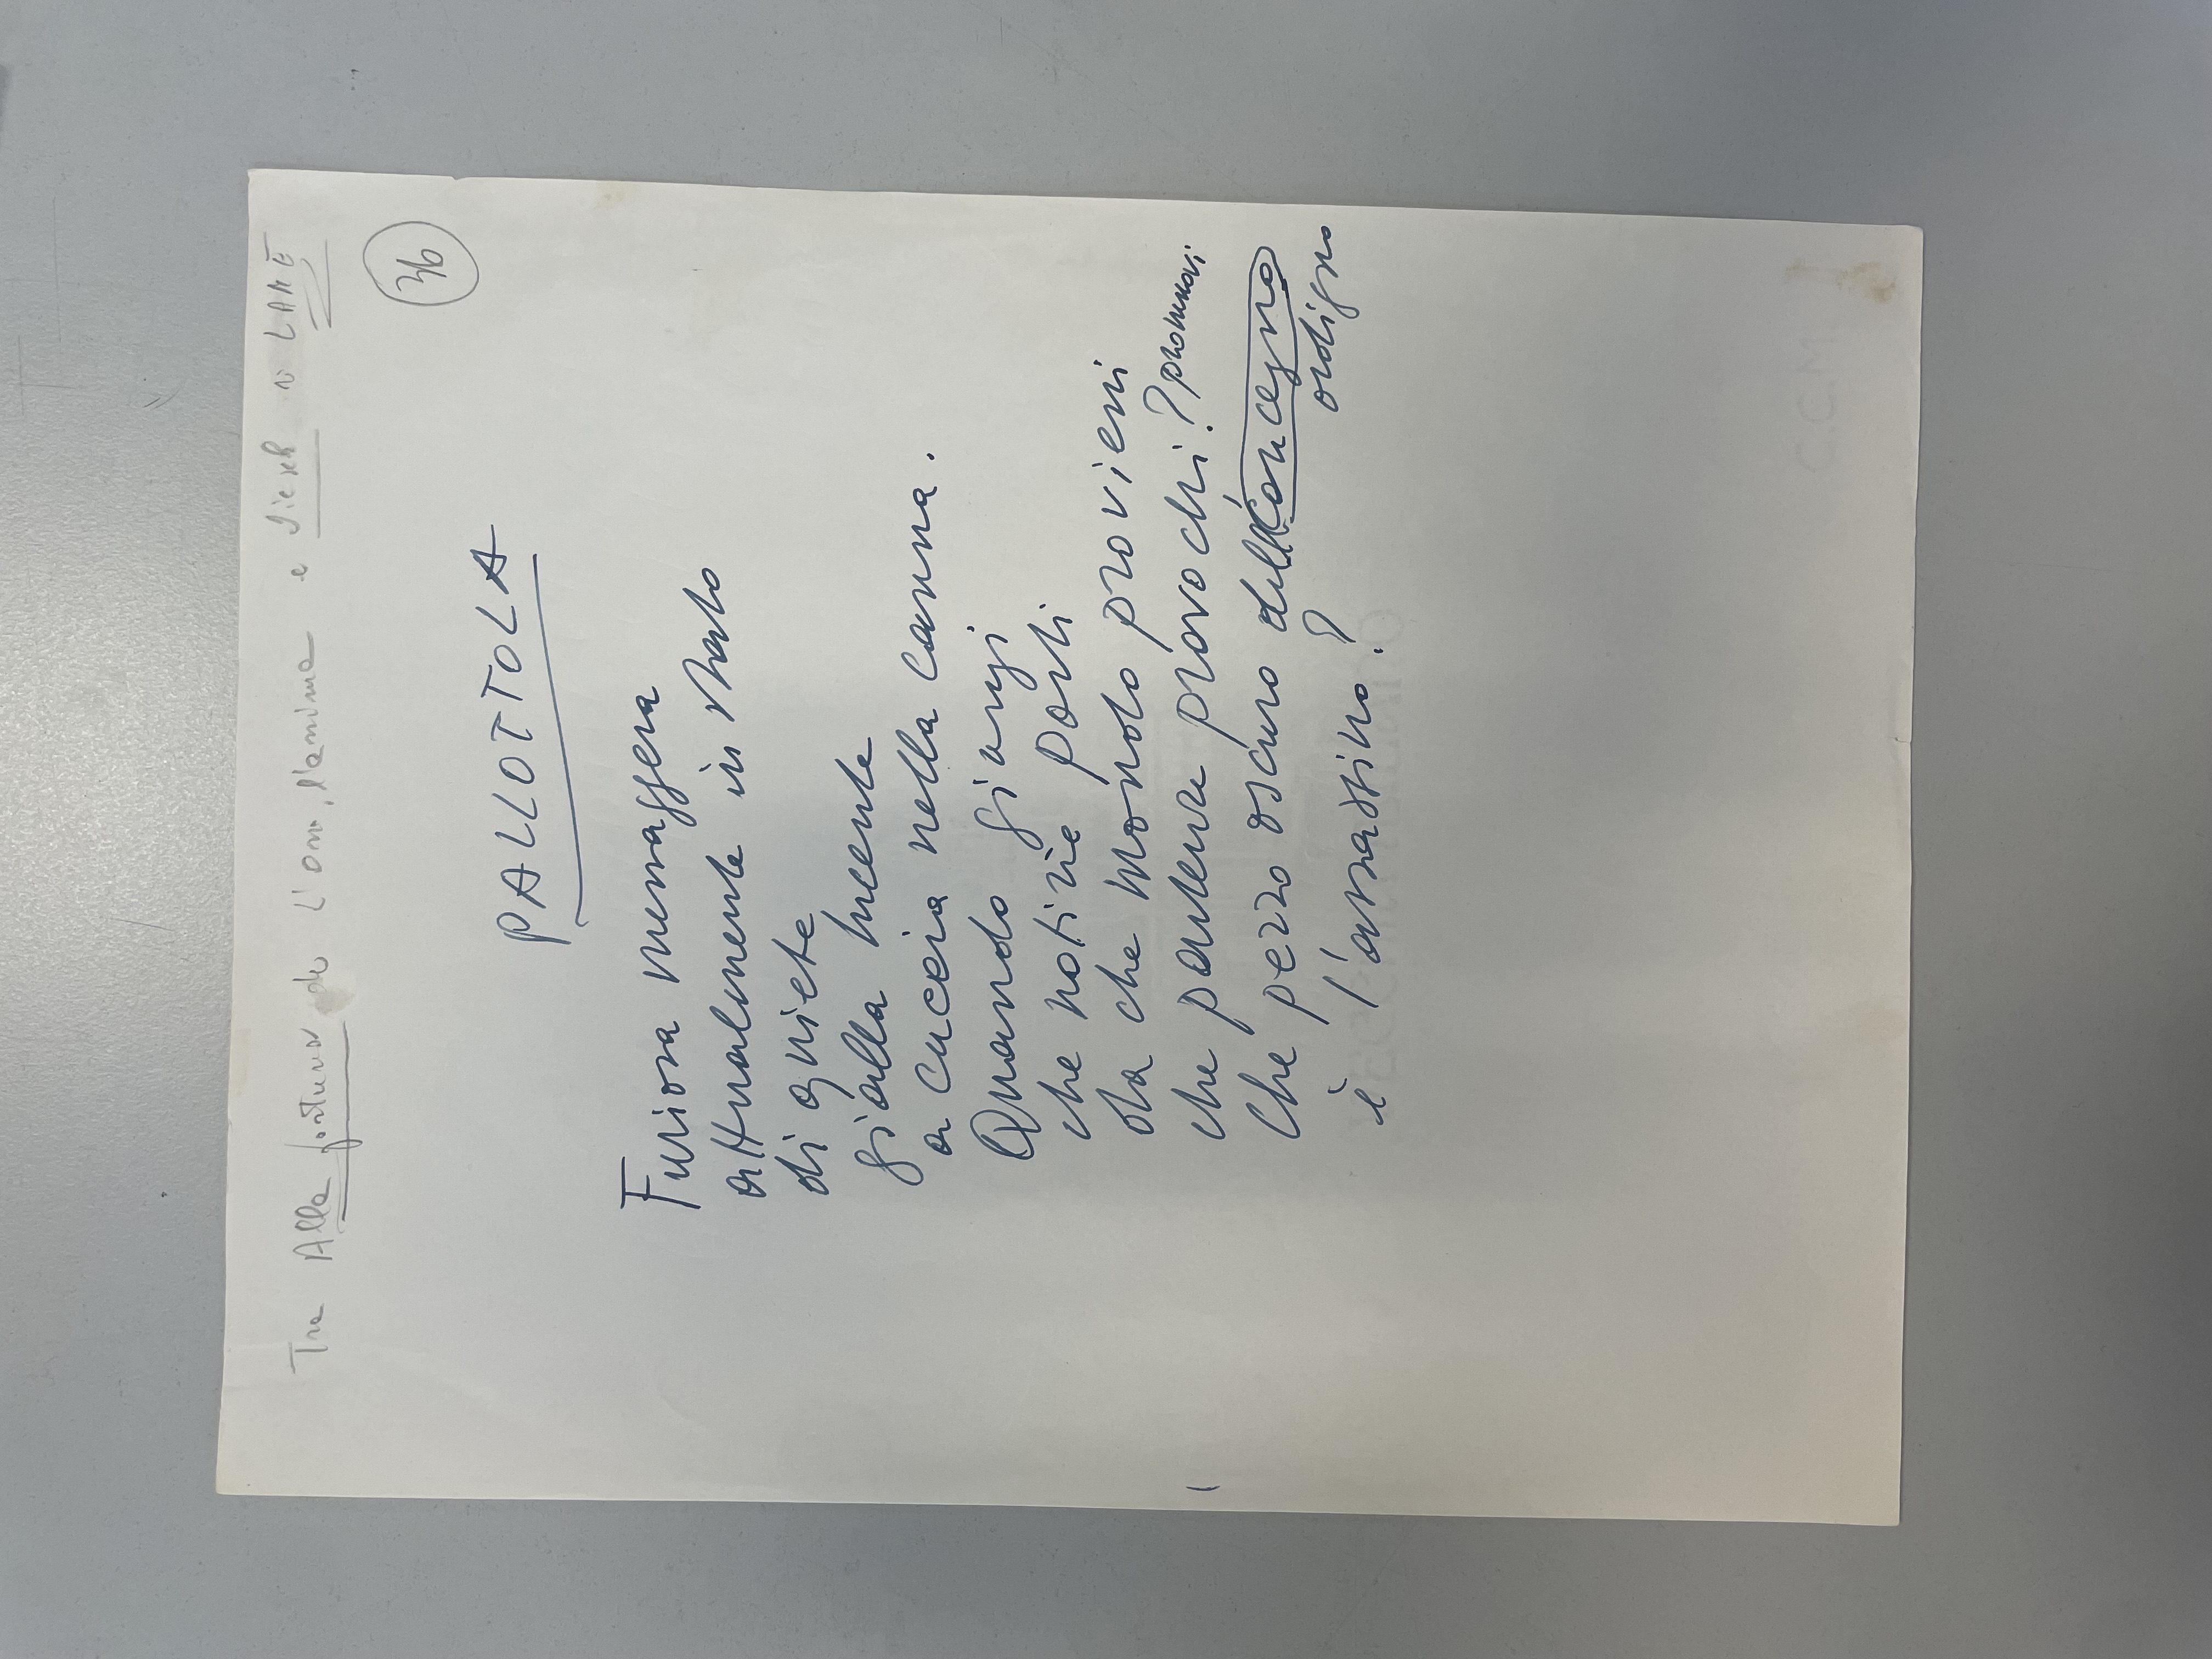 Tra Alla fortuna do L'oro, l'anima e
36
PALLOTTOLA
Furiosa messaggera
attualmente in stato
di quiete
gialla lucente
a cuccia nella canna.
Quando giungi
che notizie porti
da che mondo provieni
che partenze provochi? promuovi
Che pezzo oscuro dell congegno
ordigno
è l'assassino?